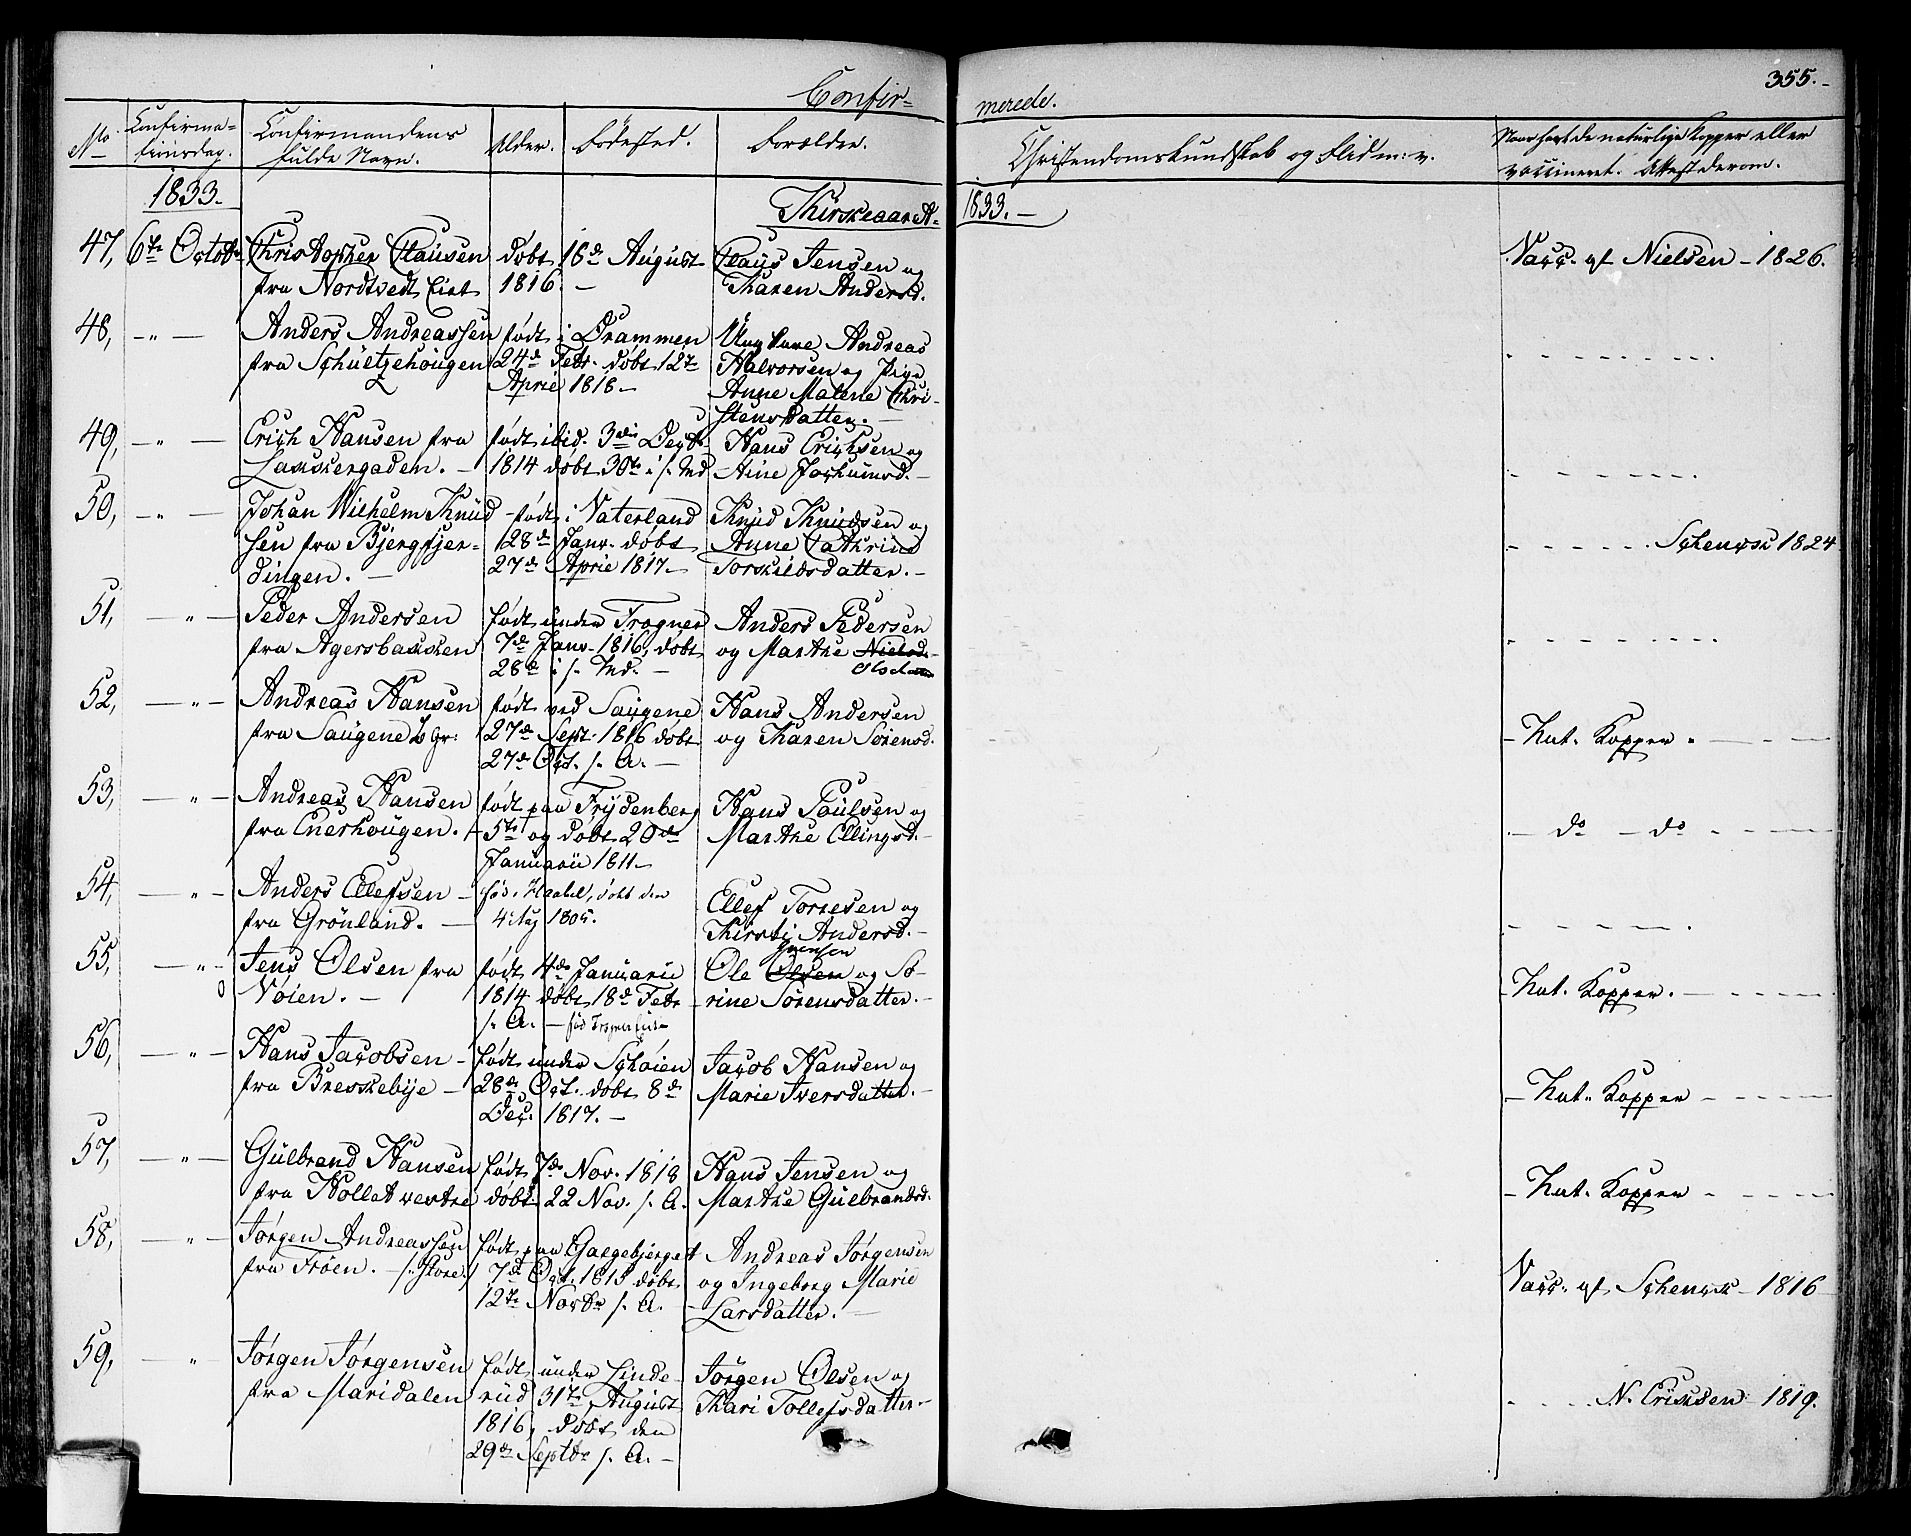 Confir-
merede.
355.
No.
Confirma-
tionsdag.
Confirmandens
fulde Navn.
Alder.
Fødested.
Forældre.
Christendomskundskab og Flid m: v.
Naar havt de naturlige Kopper eller
vaccineret. Attest derom.
1833.
Kirkeaaret
1833.
47, 6te Octobr Christopher Clausen døbt 16d August Claus Jensen og Vacc. af Nielsen - 1826.
fra Nordtvedt Eiet 1816. - Karen Andersd.
48, -"- Anders Andreassen født i Drammen Ungkare Andreas
fra Schultzehougen 24d Febr. døbt 12te Halvorsen og Pige
April 1818 - Anne Malene Chri-
stensdatter. -
49, -"- Erich Hansen fra født ibid. 3die Hans Erichsen og
Lakkergaden. - 1814 døbt 30te i s. Md Aine Jochumsd. -
50, -"- Johan Wilhelm Knud født i Vaterland Knud Knudsen og
sen fra Bjergfjer- 28d Janv. døbt Anne Cathrine Schenck 1824
dingen. - 27d April 1817. - Torskildsdatter. -
51, -"- Peder Andersen født under Frogner Anders Pedersen
fra Agersbakken 7d Janv. 1816, døbt og Marthe Nielsd.
28d i s. Md. - Olsdatter
52, -"- Andreas Hansen født ved Saugene Hans Andersen
fra Saugene 27d Sept. 1816 døbt og Karen Sørensd. Nat. Kopper
27d Oct. s. A. -
53, -"- Andreas Hansen født paa Frydenberg Hans Poulsen og
fra Enerhougen. 5te og døbt 20de Marthe Ellingsd. - do - do
Januarii 1811 -
54, -"- Anders Ellefsen - død den
fra Grønland. - 1805. Ellef Torresen og
Kirsti Andersd. -
55, -"- Jens Olsen fra født 4de Januarii Ole Olsen og Sø-
Svensen
Vøien. - 1814 døbt 18d Febr rine Sørensdatter. - Nat. Kopper.
s. A. -
56, -"- Hans Jacobsen - født under Schøien Jacob Hansen og
fra Breskebye - 28de Oct. døbt 8d Marie Iversdatter. - Nat. Kopper
Dec. 1817. -
57, -"- Gulbrand Hansen født 7de Nov. 1818 Hans Jensen og
fra Kollet vestre døbt 22 Nov. s. A. Marthe Gulbrandsd. Nat. Kopper
58, -"- Jørgen Andreassen født paa Galgebjerget Andreas Jørgensen
fra Frøen. - (Store) 7d Oct. 1815 døbt og Ingeborg Marie Vacc. af Schenck - 1816
12te Novbr s. A. Larsdatter. -
59, -" Jørgen Jørgensen født under Linde- Jørgen Olsen og
fra Maridalen rud 31te August Kari Tollefsdatter - N. Erichsen 1819.
1816, døbt den
29de Septbr s. A. -